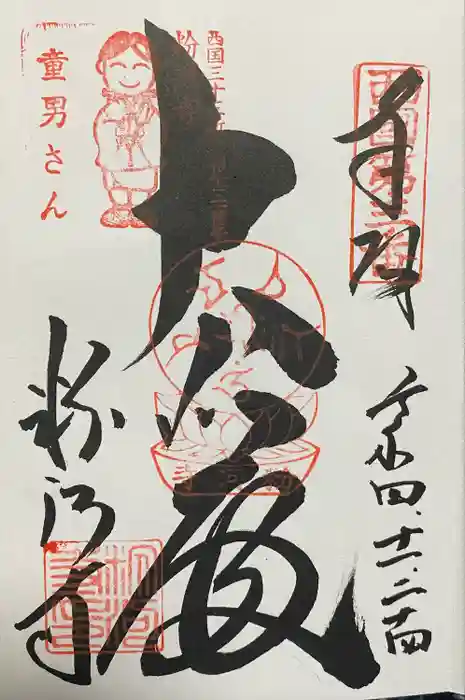 奉拝
西国第三番
令和四、十一、二十四
大悲殿
粉河寺
粉河寺
童男さん